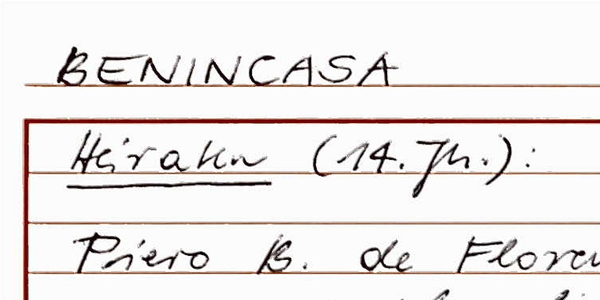 BENINCASA
Heraku (14. Jh.):
Piero B. de Floren